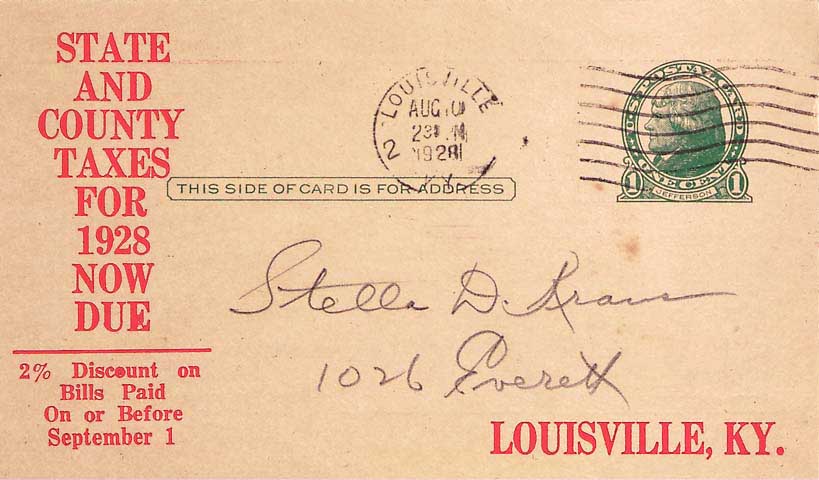 STATE
AND
COUNTY
TAXES
FOR
1928
NOW
DUE
2% Discount on
Bills Paid
On or Before
September 1
LOUISVILLE
AUG 10
1928
KY.
2
U.S. POSTAL CARD
1 JEFFERSON 1
THIS SIDE OF CARD IS FOR ADDRESS
Stella D. Kraus
1026 Everett
LOUISVILLE, KY.